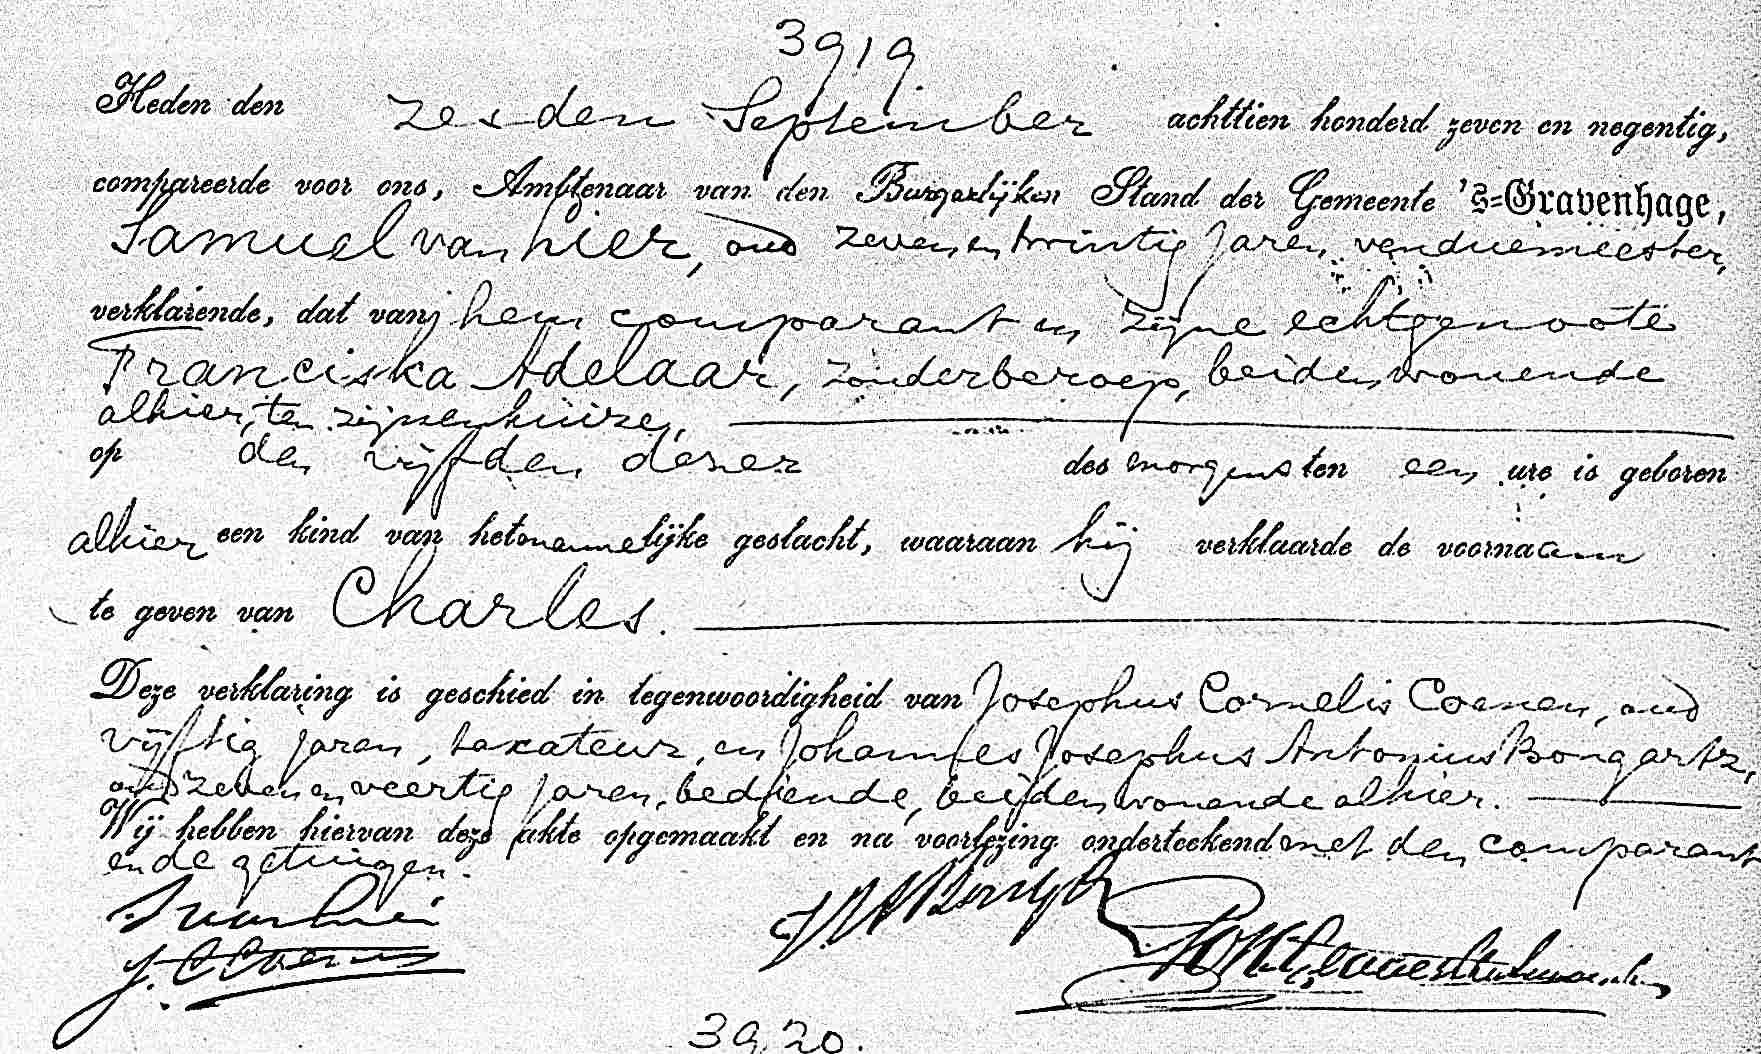 3919
Heden den zesden September achttien honderd zeven en negentig,
compareerde voor ons, Ambtenaar van den Burgerlijken Stand der Gemeente 's-Gravenhage,
Samuel van Lier, oud zeven en twintig jaren, venduemeester,
verklarende, dat van hem comparant en zijne echtgenoote
Franciska Adelaar, zonder beroep, beiden wonende
alhier, ten zijnen huize,
op den vijfden dezer des morgens ten een ure is geboren
alhier een kind van het mannelijke geslacht, waaraan hij verklaarde de voornaam
te geven van Charles.
Deze verklaring is geschied in tegenwoordigheid van Josephus Cornelis Coenen, oud
vijftig jaren, taxateur, en Johannes Josephus Antonius Bongartz,
oud zeven en veertig jaren, bediende, beiden wonende alhier.
Wij hebben hiervan deze akte opgemaakt en na voorlezing onderteekend met den comparant
en de getuigen.
S van Lier
J. C Coenen
3920.